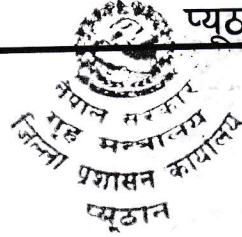 प्यूठ
नेपाल सरकार
गृह मन्त्रालय
जिल्ला प्रशासन कार्यालय
प्यूठान